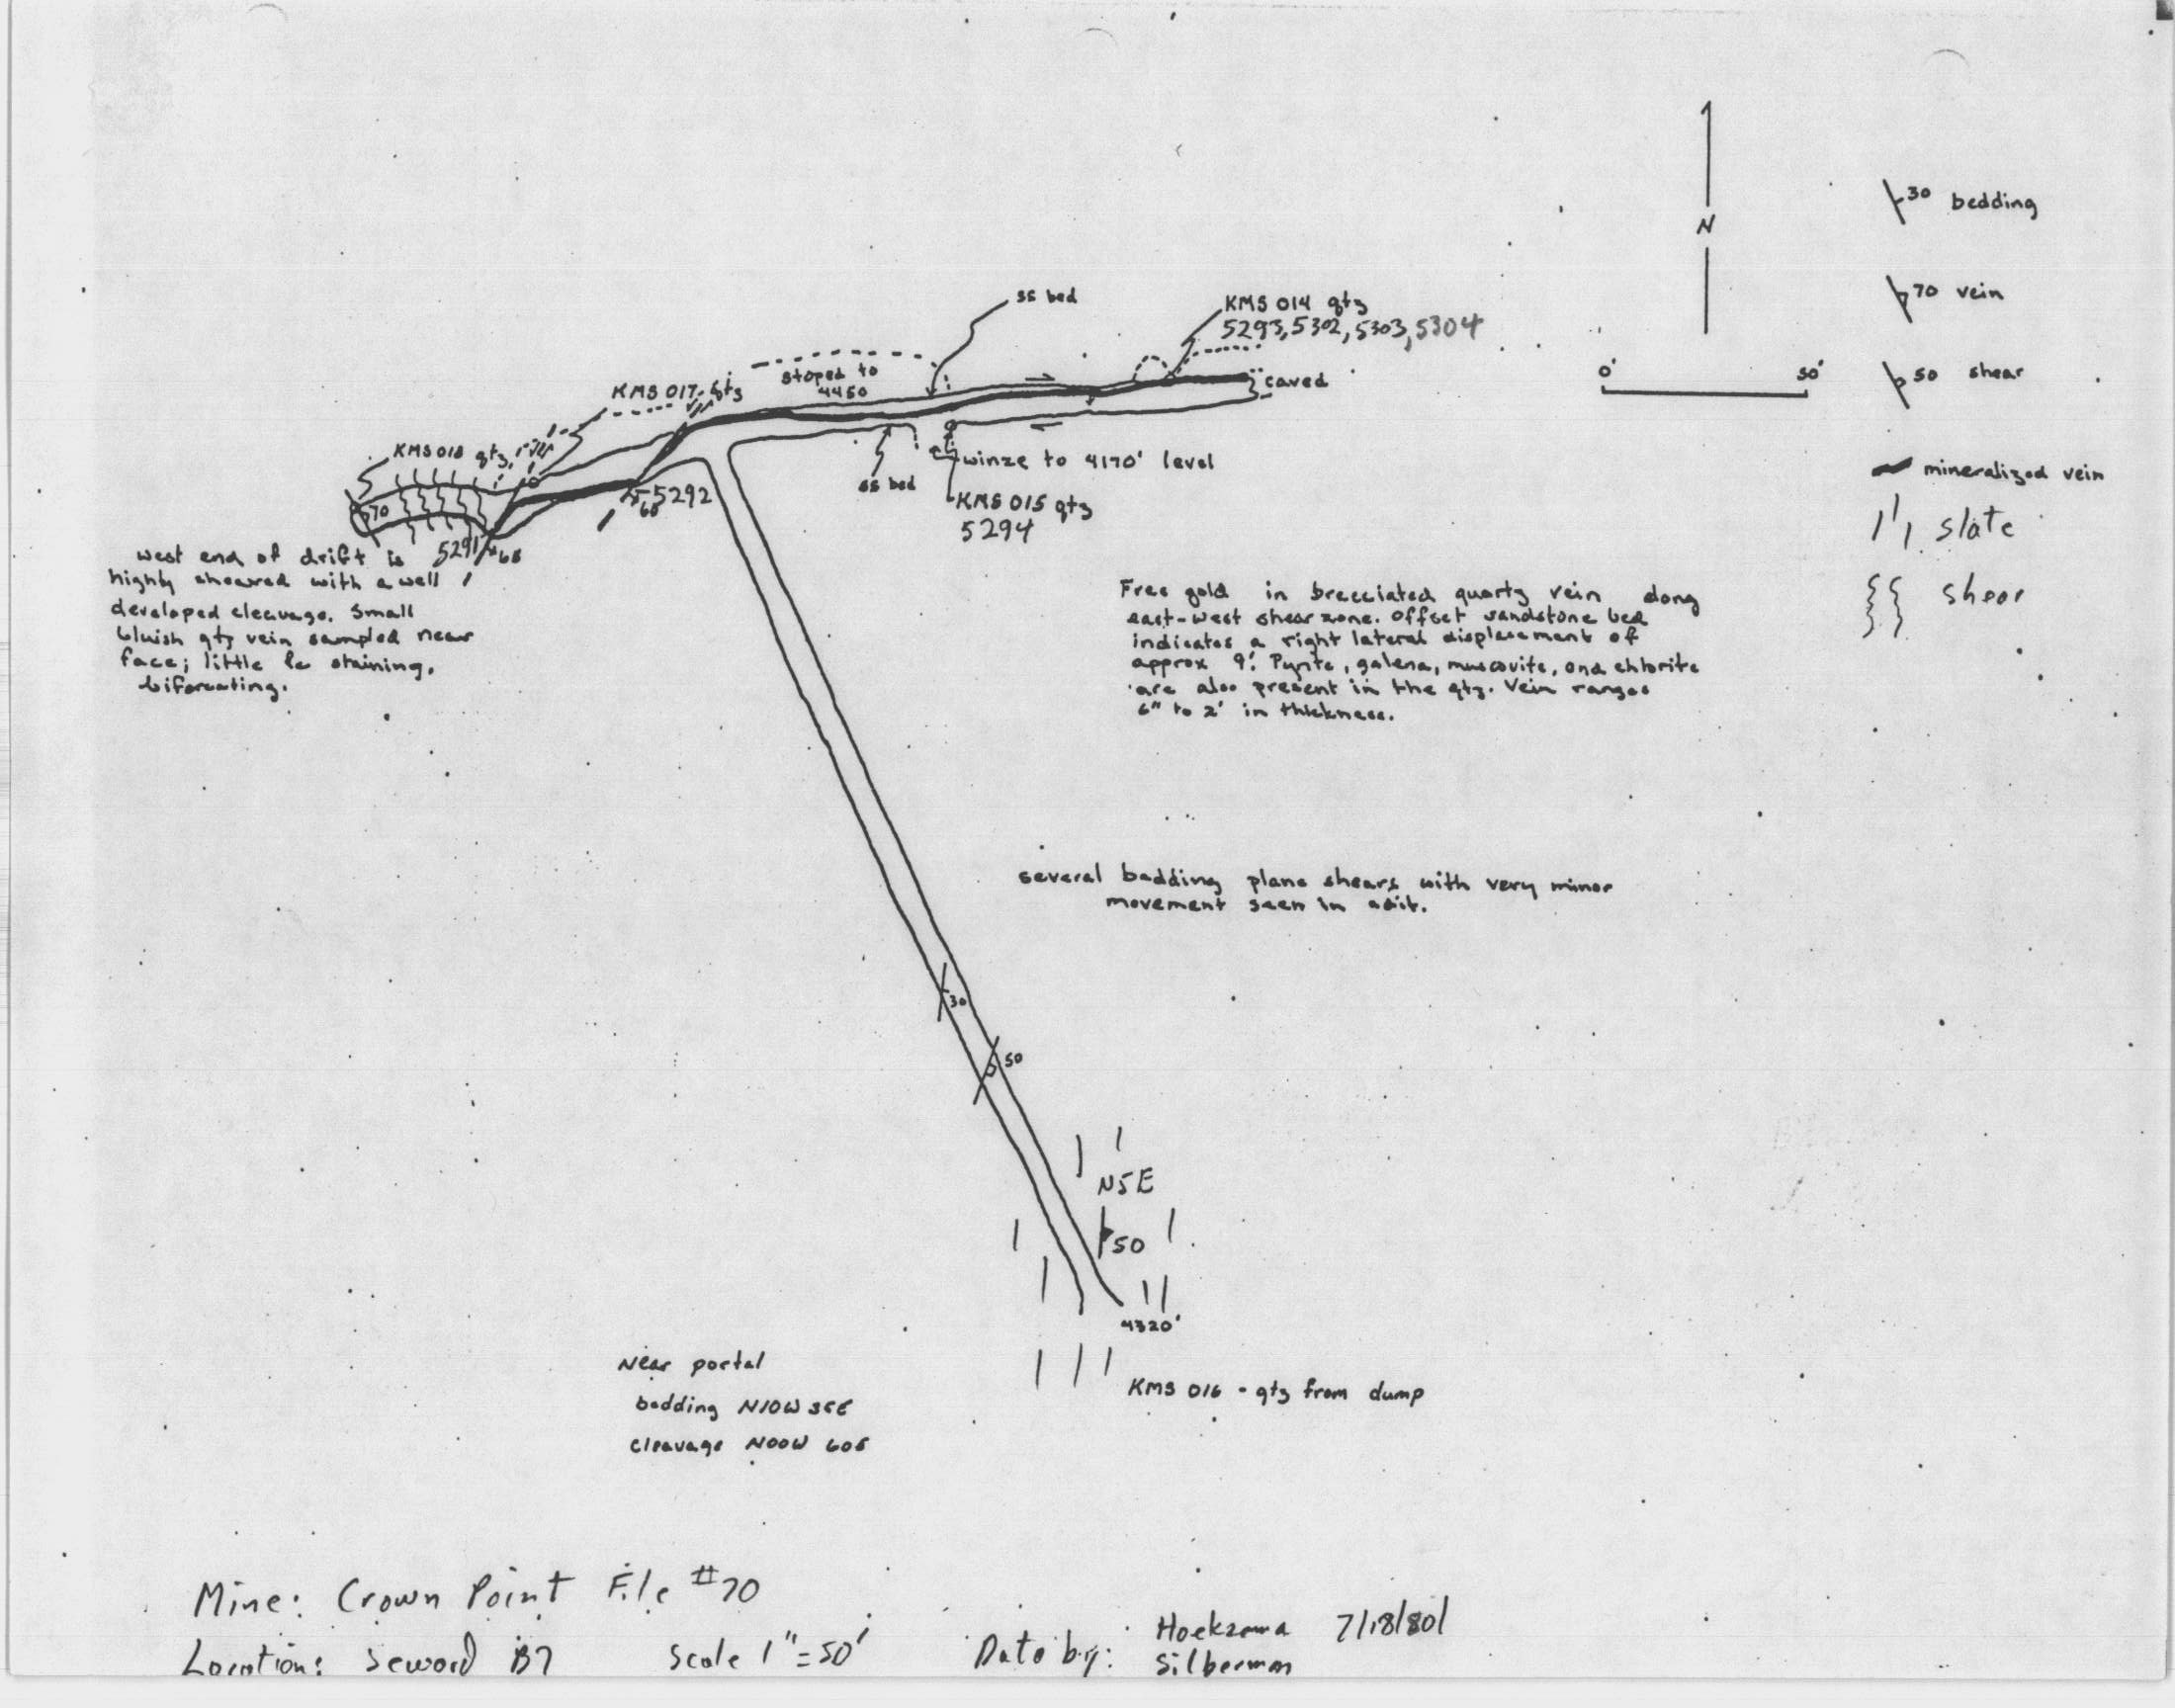 N
30 bedding
70 vein
50 shear
0' 50'
mineralized vein
slate
shear
ss bed
KMS 014 qtz
5293, 5302, 5303, 5304
stoped to
4450
KMS 017 qtz
caved
KMS 018 qtz
winze to 4170' level
ss bed
KMS 015 qtz
5294
70
5292
68
5291 68
west end of drift is
highly sheared with a well
developed cleavage. Small
bluish qtz vein sampled near
face; little Fe staining,
biforcating.
Free gold in brecciated quartz vein along
east-west shear zone. Offset sandstone bed
indicates a right lateral displacement of
approx 9'. Pyrite, galena, muscovite, and chlorite
are also present in the qtz. Vein ranges
6" to 2' in thickness.
several bedding plane shears with very minor
movement seen in adit.
30
50
N5E
50
4320'
Near portal
bedding N10W 35E
cleavage N00W 60E
KMS 016 - qtz from dump
Mine: Crown Point File #70
Location: Seward B7 Scale 1" = 50'
Data by: Hoekzema 7/18/80
Silberman